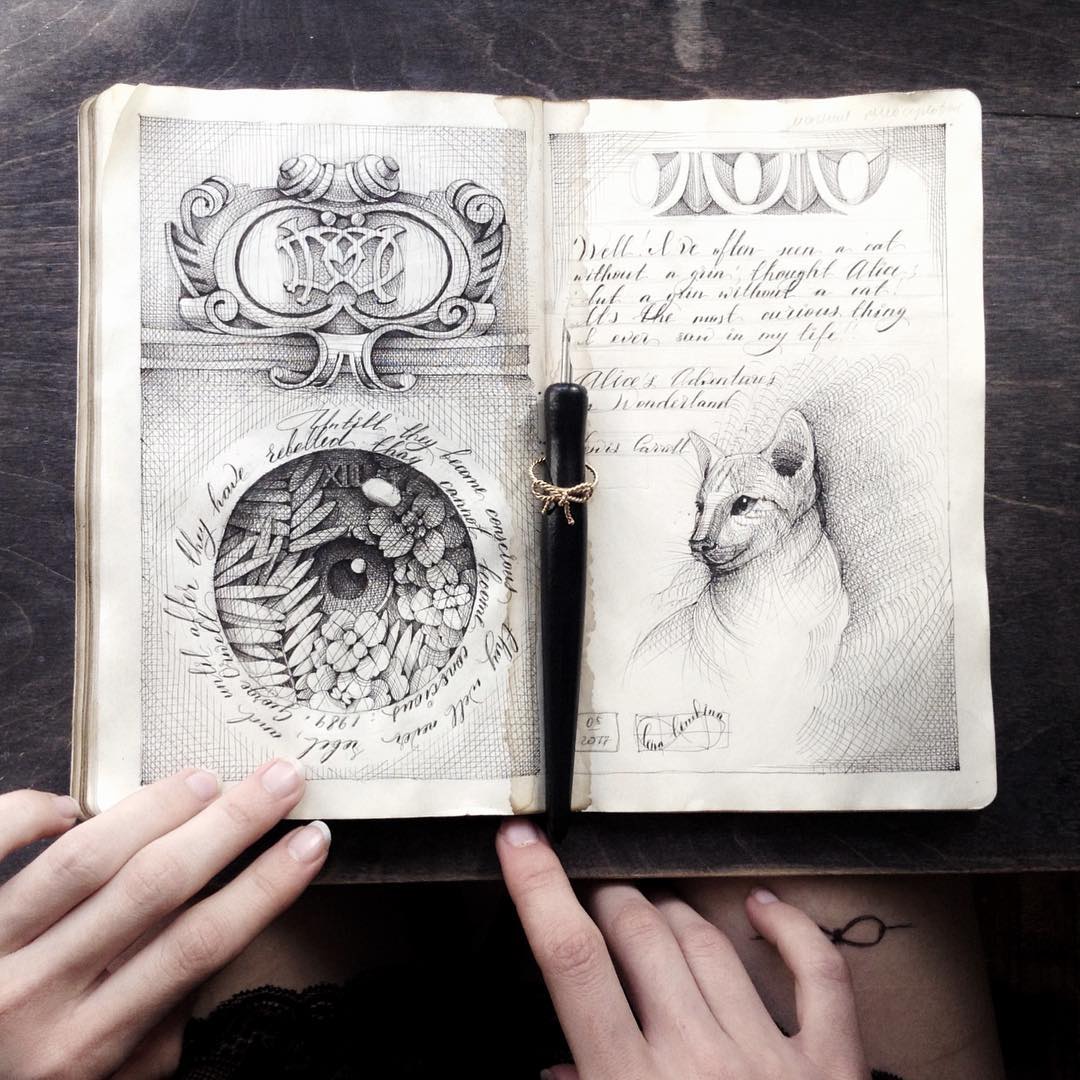 XII
Untill they become conscious they will never rebel, and untill after they have
rebelled they cannot become conscious : 1984, George Orwell
Well! I've often seen a cat
without a grin; thought Alice;
but a grin without a cat!
It's the most curious thing
I ever saw in my life!
Alice's Adventures
in Wonderland
Lewis Carroll
05
2017
Lena